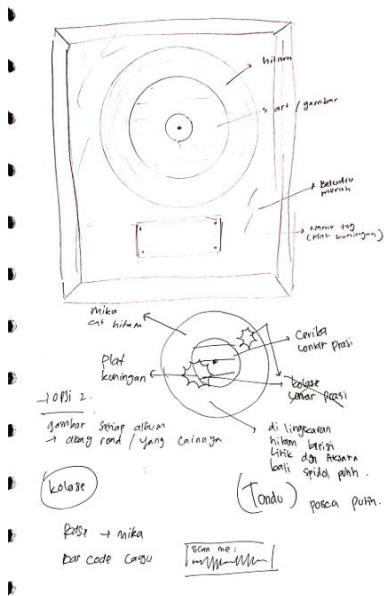 hitam
art / gambar
Beludru
merah
Name tag
(Plat kuningan)
mika
cat hitam
Cerita
lontar prasi
plat
kuningan
kolase
lontar prasi
→ OPSI 2.
gambar setiap album
→ abbey road / yang lainnya
di lingkaran
hitam berisi
lirik dgn Aksara
bali spidol putih.
kolase
(Tondu) posca putih.
→ mika
Bar code Lagu
Scan me: